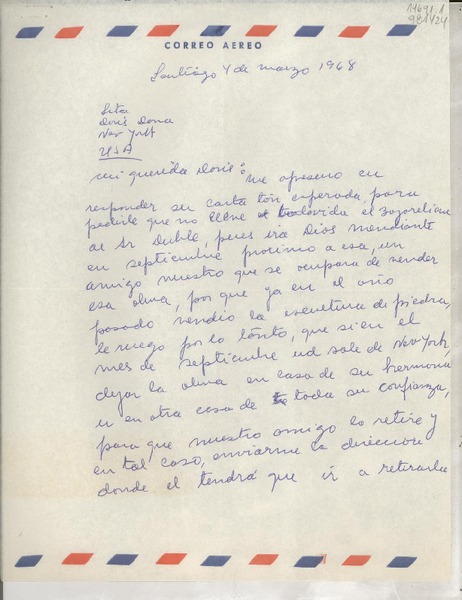 14691.1
981424
CORREO AEREO
Santiago 4 de marzo 1968
Srta
Doris Dana
New York
USA
mi querida Doris: me apresuro en
responder su carta tan esperada, para
pedirle que no lleve todavida el
al Sr Duble, pues irá Dios mendiante
en septiembre proximo a esa, un
amigo nuestro que se ocupara de vender
esa obra, por que ya en el año
pasado vendio la escultura de piedra,
le ruego por lo tánto, que si en el
mes de septiembre ud sale de New York,
dejar la obra en casa de su hermana
u en otra casa de toda su confianza,
para que nuestro amigo lo retire y
en tal caso, enviarme la direccion
donde el tendrá que ir a retirarlo